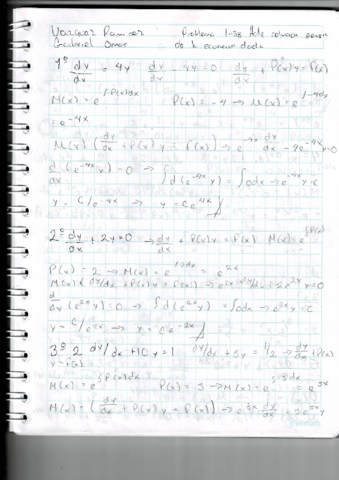 Vazquez Ramirez Problema 1-38 Hale solucion general
Gabriel Omar de la ecuacion dada
1° dy/dx = 4y dy/dx - 4y = 0 dy/dx + P(x)y = f(x)
M(x) = e^∫P(x)dx P(x) = -4 → M(x) = e^∫-4dx
= e^-4x
M(x) (dy/dx + P(x)y = f(x)) → e^-4x dy/dx - 4e^-4x y = 0
d/dx (e^-4x y) = 0 → ∫d(e^-4x y) = ∫0dx → e^-4x y = c
y = c/e^-4x → y = ce^4x
2° dy/dx + 2y = 0 → dy/dx + P(x)y = f(x) M(x) = e^∫P(x)
P(x) = 2 → M(x) = e^∫2dx = e^2x
M(x) (dy/dx + P(x)y = f(x)) → e^2x dy/dx + 2e^2x y = 0
d/dx (e^2x y) = 0 → ∫d(e^2x y) = ∫0dx → e^2x y = c
y = c/e^2x → y = ce^-2x
3° 2 dy/dx + 10y = 1 dy/dx + 5y = 1/2 → dy/dx + P(x)
y = f(x)
M(x) = e^∫P(x)dx P(x) = 5 → M(x) = e^∫5dx = e^5x
M(x) = (dy/dx + P(x)y = f(x)) → e^5x dy/dx + 5e^5x y